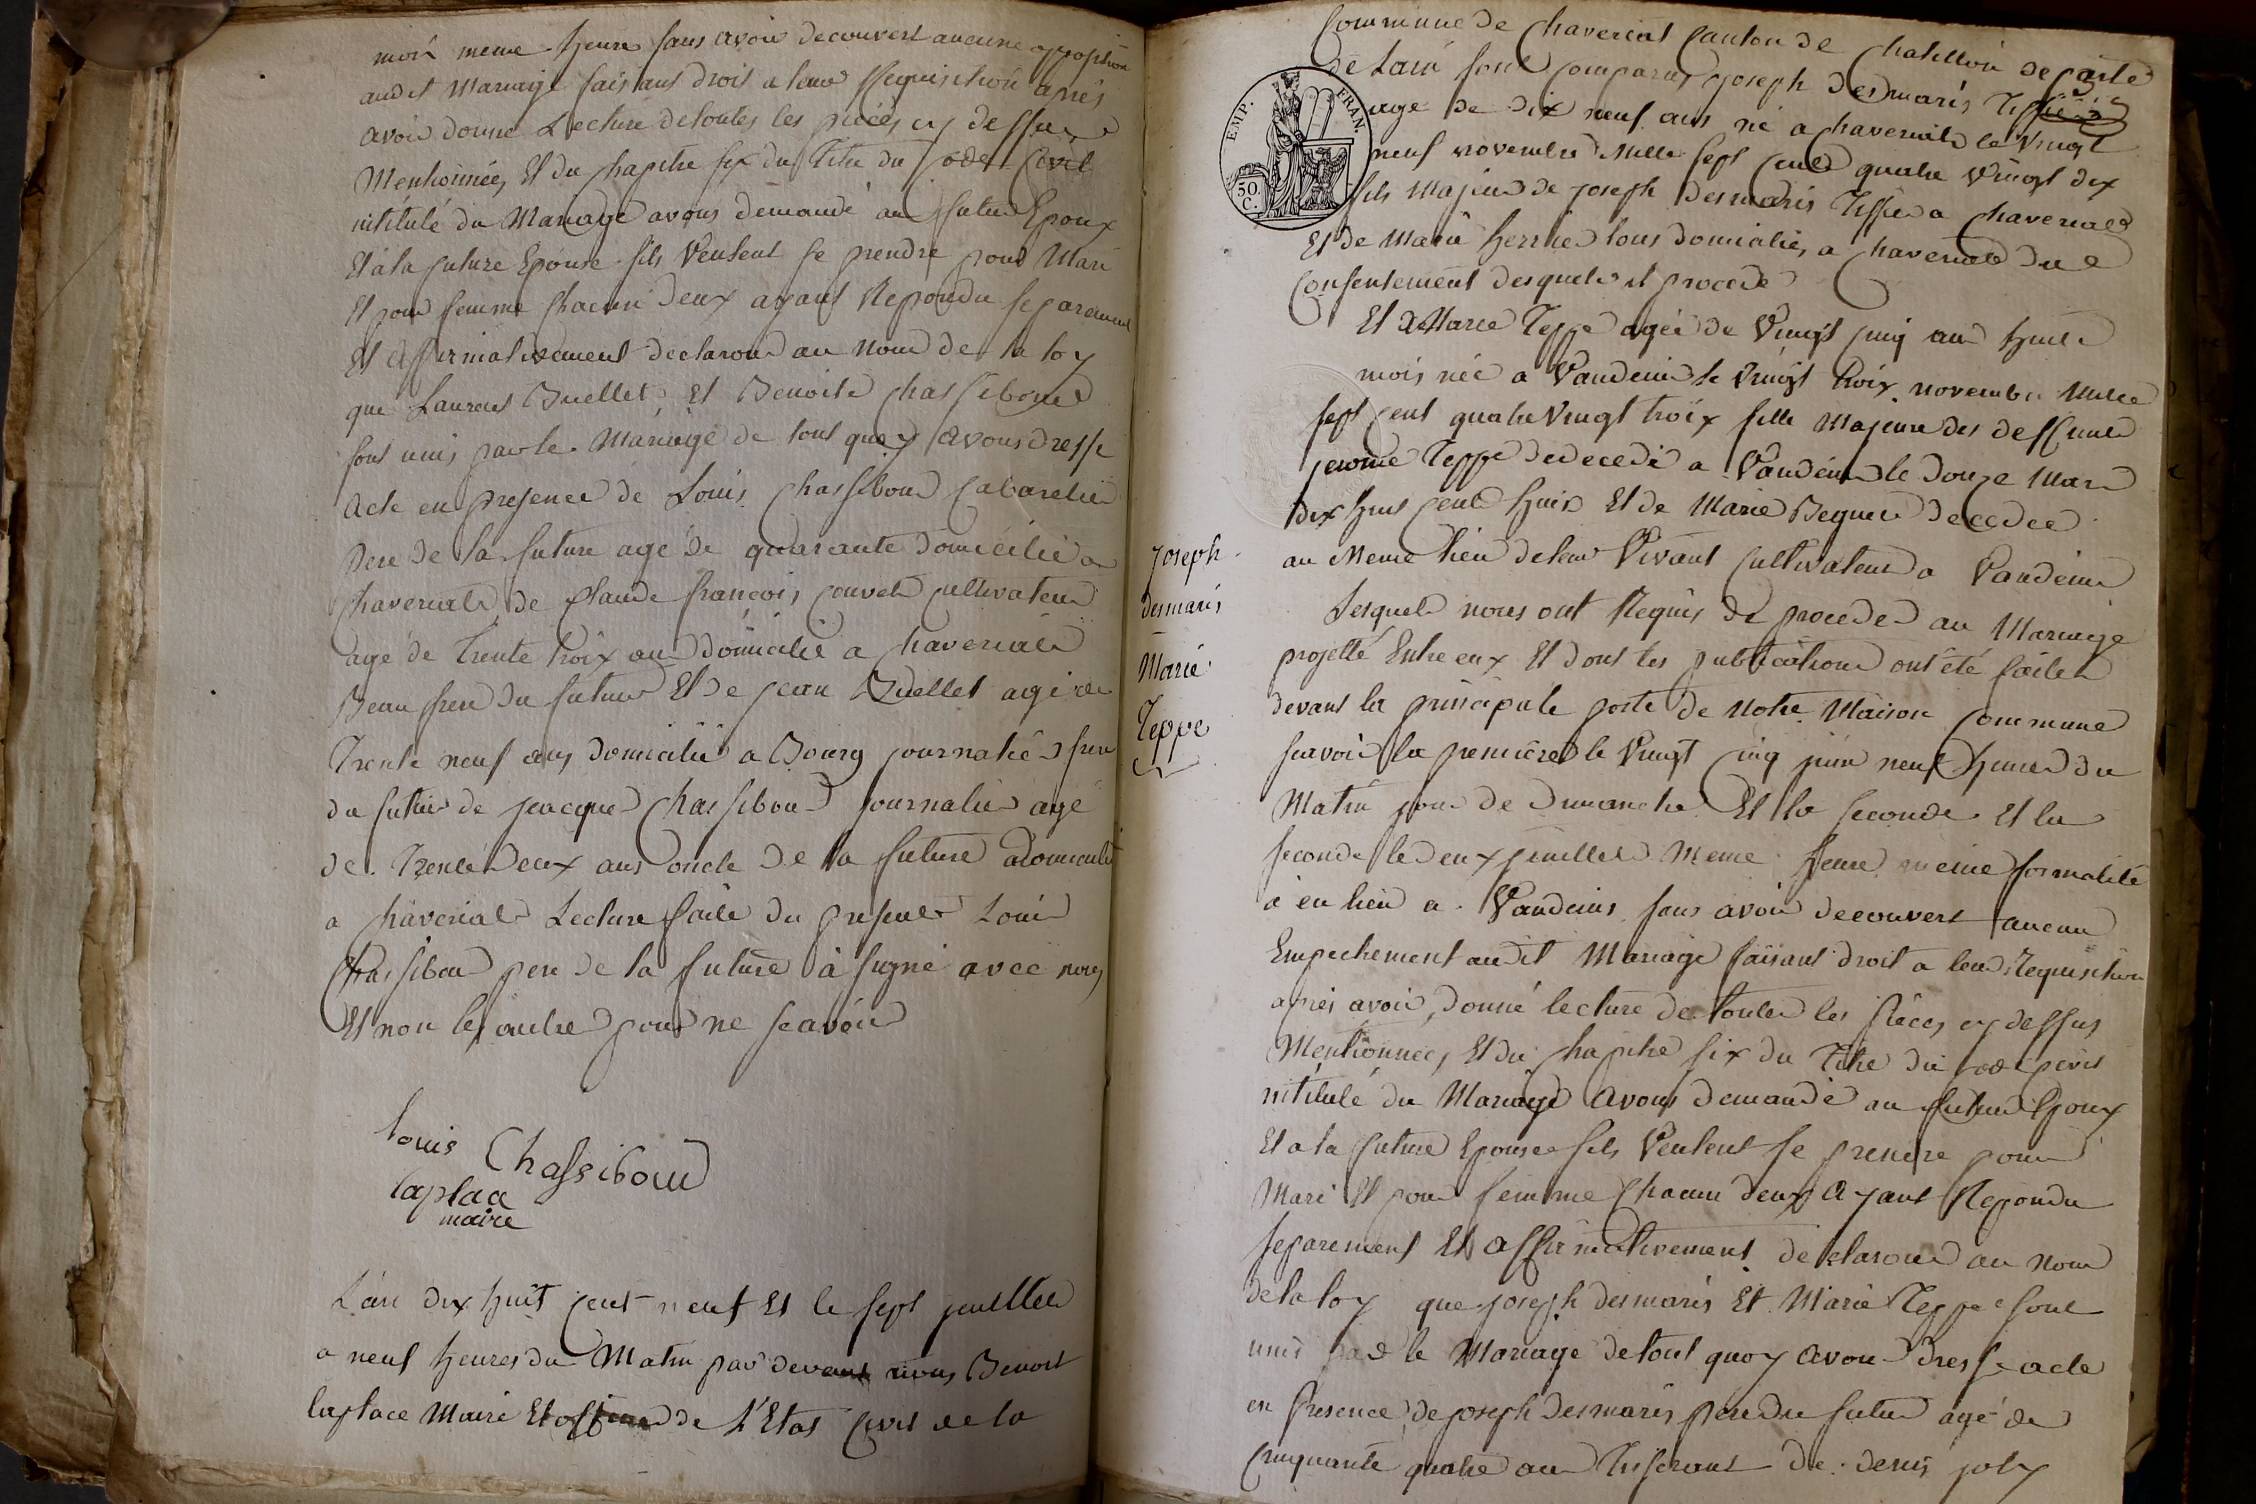 mois meme heure sans avoir decouvert aucune opposition
audit Mariage faisant droit a leur Requisition après
avoir donné Lecture de toutes les pièces cy dessus
Mentionnées Et du chapitre six du Titre du Code Civil
intitulé du Mariage avons demandé au futur Epoux
Et a la future Epouse sils Veulent se prendre pour Mari
Et pour femme chacun deux ayant Repondu separement
Et affirmativement declarons au nom de la loy
que Laurent Buellet Et Benoite Chassiboud
sont unis par le Mariage de tout quoy avons dressé
acte en presence de Louis Chassiboud Cabaretier
Pere de la future agé de quarante domicilié a
Chaveriat de Claude françois Couvet cultivateur
agé de Trente trois ans domicilié a chaveriat
Beau frere du futur Et de jean Buellet agé de
Trente neuf ans domicilié a Bourg journalier frere
du futur de jeacque Chassiboud journalier agé
de Trente Deux ans oncle de la future domicilié
a chaveriat Lecture faite du present Louis
Chassiboud pere de la future à signé avec nous
Et non les autre pour ne scavoir
louis Chassiboud
laplace
maire
L'an dix huit cent neuf Et le sept juillet
a neuf heures du Matin par devant nous Benoit
laplace Maire Et officier de L'Etat Civil de la
Joseph
desmaris
Marie
Teppe
Commune de Chaveriat Canton de Chatillon departe
EMP. FRAN.
50.
C.
de Lain sont comparus joseph desmaris Tissier
agé de dix neuf ans né a chaveriat le vingt
neuf novembre Mille sept Cent quatre Vingt dix
fils Majeur de joseph Desmaris Tissier a Chaveriat
Et de Marie herrier tous domiciliés a chaveriat du
Consentement desquels il procede
Et Marie Teppe agée de Vingt cinq ans huit
mois née a Vandeins le Vingt trois novembre Mille
sept cent quatre Vingt trois fille Majeure des deffunts
jerome Teppe decedé a Vandeins le douze Mars
dix huit cent huit Et de Marie Beguet decedée
au Meme lieu de leur Vivant Cultivateurs a Vandeins
Lesquels nous ont Requis de proceder au Mariage
projetté Entre eux Et dont les publications ont été faites
devant la principale porte de Notre Maison Commune
scavoir la premiere le Vingt cinq juin neuf heures du
Matin jour de dimanche Et la seconde Et la
seconde le deux juillet Meme heure meme formalité
à eu lieu a Vandeins sans avoir decouvert aucun
Empechement audit Mariage faisant droit a leur Requisition
après avoir donné lecture de toutes les Pièces cy dessus
Mentionnées Et du chapitre six du Titre du code civil
intitulé du Mariage avons demandé au futur Epoux
Et a la future Epouse sils Veulent se prendre pour
Mari Et pour femme Chacun deux Ayant Repondu
separement Et affirmativement declarons au Nom
de la loy que joseph desmaris Et Marie Teppe sont
unis par le Mariage de tout quoy avons dressé acte
en Presence de joseph desmaris père du futur agé de
Cinquante quatre ans Tisserant de denis joly